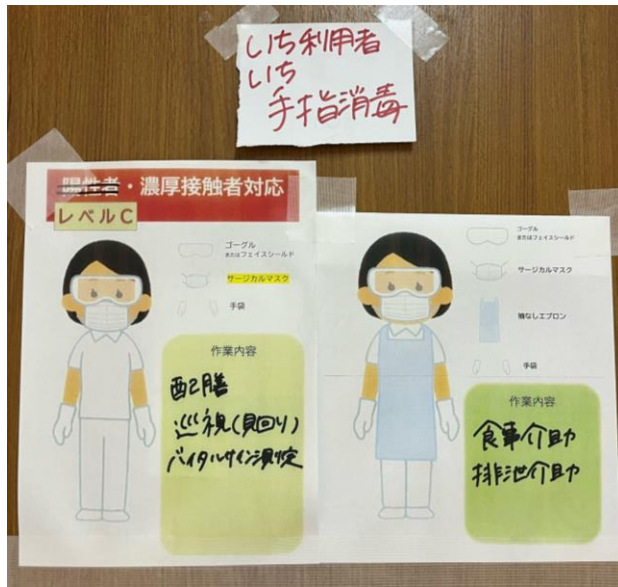 いち利用者
いち
手指消毒
陽性者・濃厚接触者対応
レベルC
ゴーグル
またはフェイスシールド
サージカルマスク
手袋
作業内容
配膳
巡視(見回り)
バイタルサイン測定
ゴーグル
またはフェイスシールド
サージカルマスク
袖なしエプロン
手袋
作業内容
食事介助
排泄介助